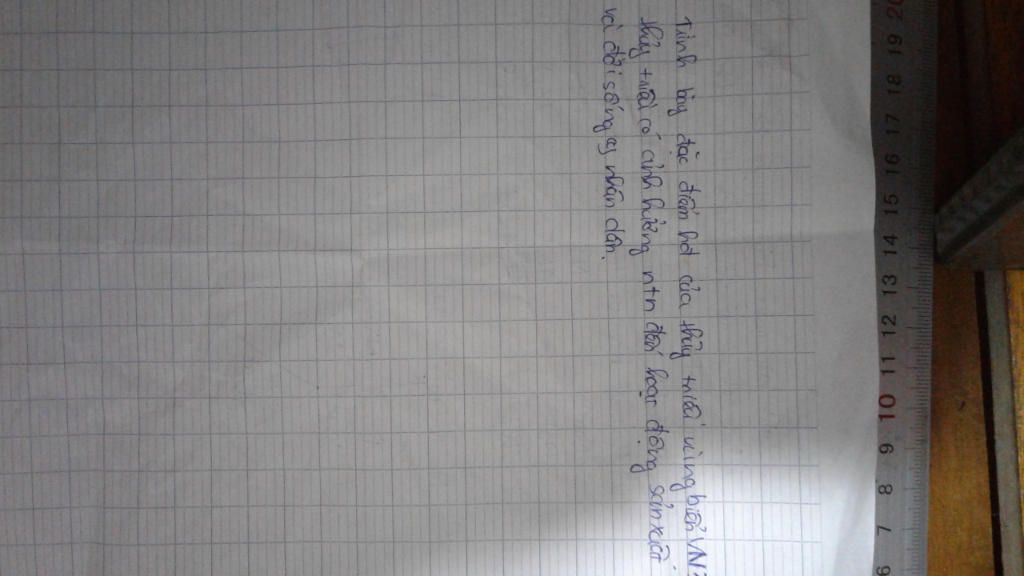 Trình bày đặc điểm hđ của thủy triều vùng biển VN?
thủy triều có ảnh hưởng ntn đến hoạt động sản xuất
và đời sống of nhân dân.
20
19
18
17
16
15
14
13
12
11
10
9
8
7
6